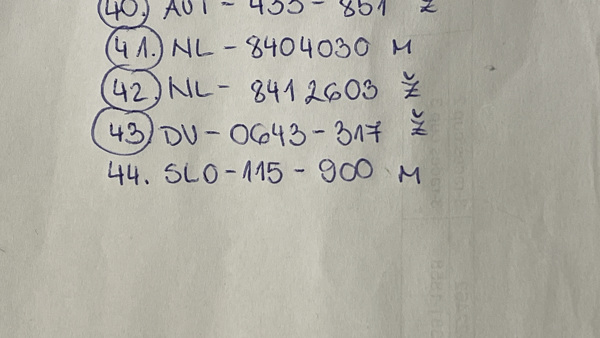 40. AUT - 433 - 851 Ž
41. NL - 8404030 M
42. NL - 8412603 Ž
43. DV - 0643 - 317 Ž
44. SLO - 115 - 900 M